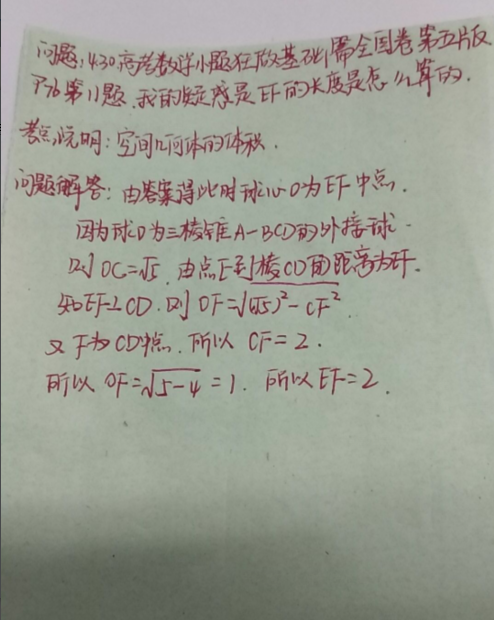 问题:430高考数学小题狂做基础篇全国卷第五版
P76第11题.我的疑惑是EF的长度是怎么算的.
考点说明:空间几何体的体积.
问题解答:由答案得此时球心O为EF中点.
因为球O为三棱锥A-BCD的外接球.
则OC=√5.由点E到棱CD的距离为EF.
知EF⊥CD.则OF=√(√5)²-CF².
又F为CD中点.所以CF=2.
所以OF=√5-4=1.所以EF=2.